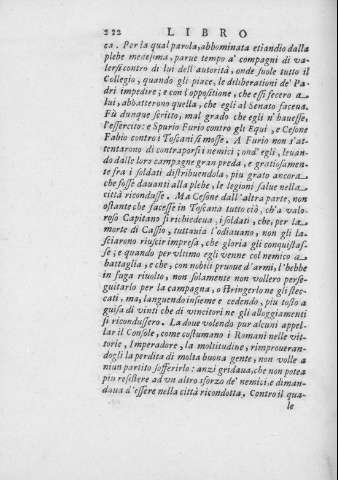 222 LIBRO
ca. Per la qual parola, abbominata etiandio dalla
plebe medesima, parue tempo a' compagni di va-
lersi contro di lui dell'autorità, onde suole tutto il
Collegio, quando gli piace, le deliberationi de' Pa-
dri impedire; e con l'oppositione, che essi fecero a
lui, abbatterono quella, che egli al Senato faceua.
Fù dunque scritto, mal grado che egli n'hauesse,
l'essercito: e Spurio Furio contro gli Equi, e Cesone
Fabio contro i Toscani si mosse. A Furio non s'at-
tentarono di contraporsi i nemici; ond'egli, leuan-
do dalle lors campagne gran preda, e gratiosamen-
te fra i soldati distribuendola, piu grato ancora
che fosse dauanti alla plebe, le legioni salue nella
città ricondusse. Ma Cesone dall'altra parte, non
ostante che facesse in Toscana tutto ciò, ch'a valo-
roso Capitano si richiedeua, i soldati, che, per la
morte di Cassio, tuttauia l'odiauano, non gli la-
sciarono riuscir impresa, che gloria gli conquistas-
se; e quando per vltimo egli venne col nemico a
battaglia, e che, con nobil pruoua d'armi, l'hebbe
in fuga riuolto, non solamente non vollero perse-
guitarlo per la campagna, o stringerlo ne gli stec-
cati, ma, languendo insieme e cedendo, piu tosto a
guisa di vinti che di vincitori ne gli alloggiamenti
si ricondussero. La doue volendo pur alcuni appel-
lar il Console, come costumano i Romani nelle vit-
torie, Imperadore, la moltitudine, rimproueran-
dogli la perdita di molta buona gente, non volle a
niun partito sofferirlo: anzi gridaua, che non potea
piu resistere ad vn altro sforzo de' nemici, e diman-
daua d'essere nella città ricondotta. Contro il qua-
le